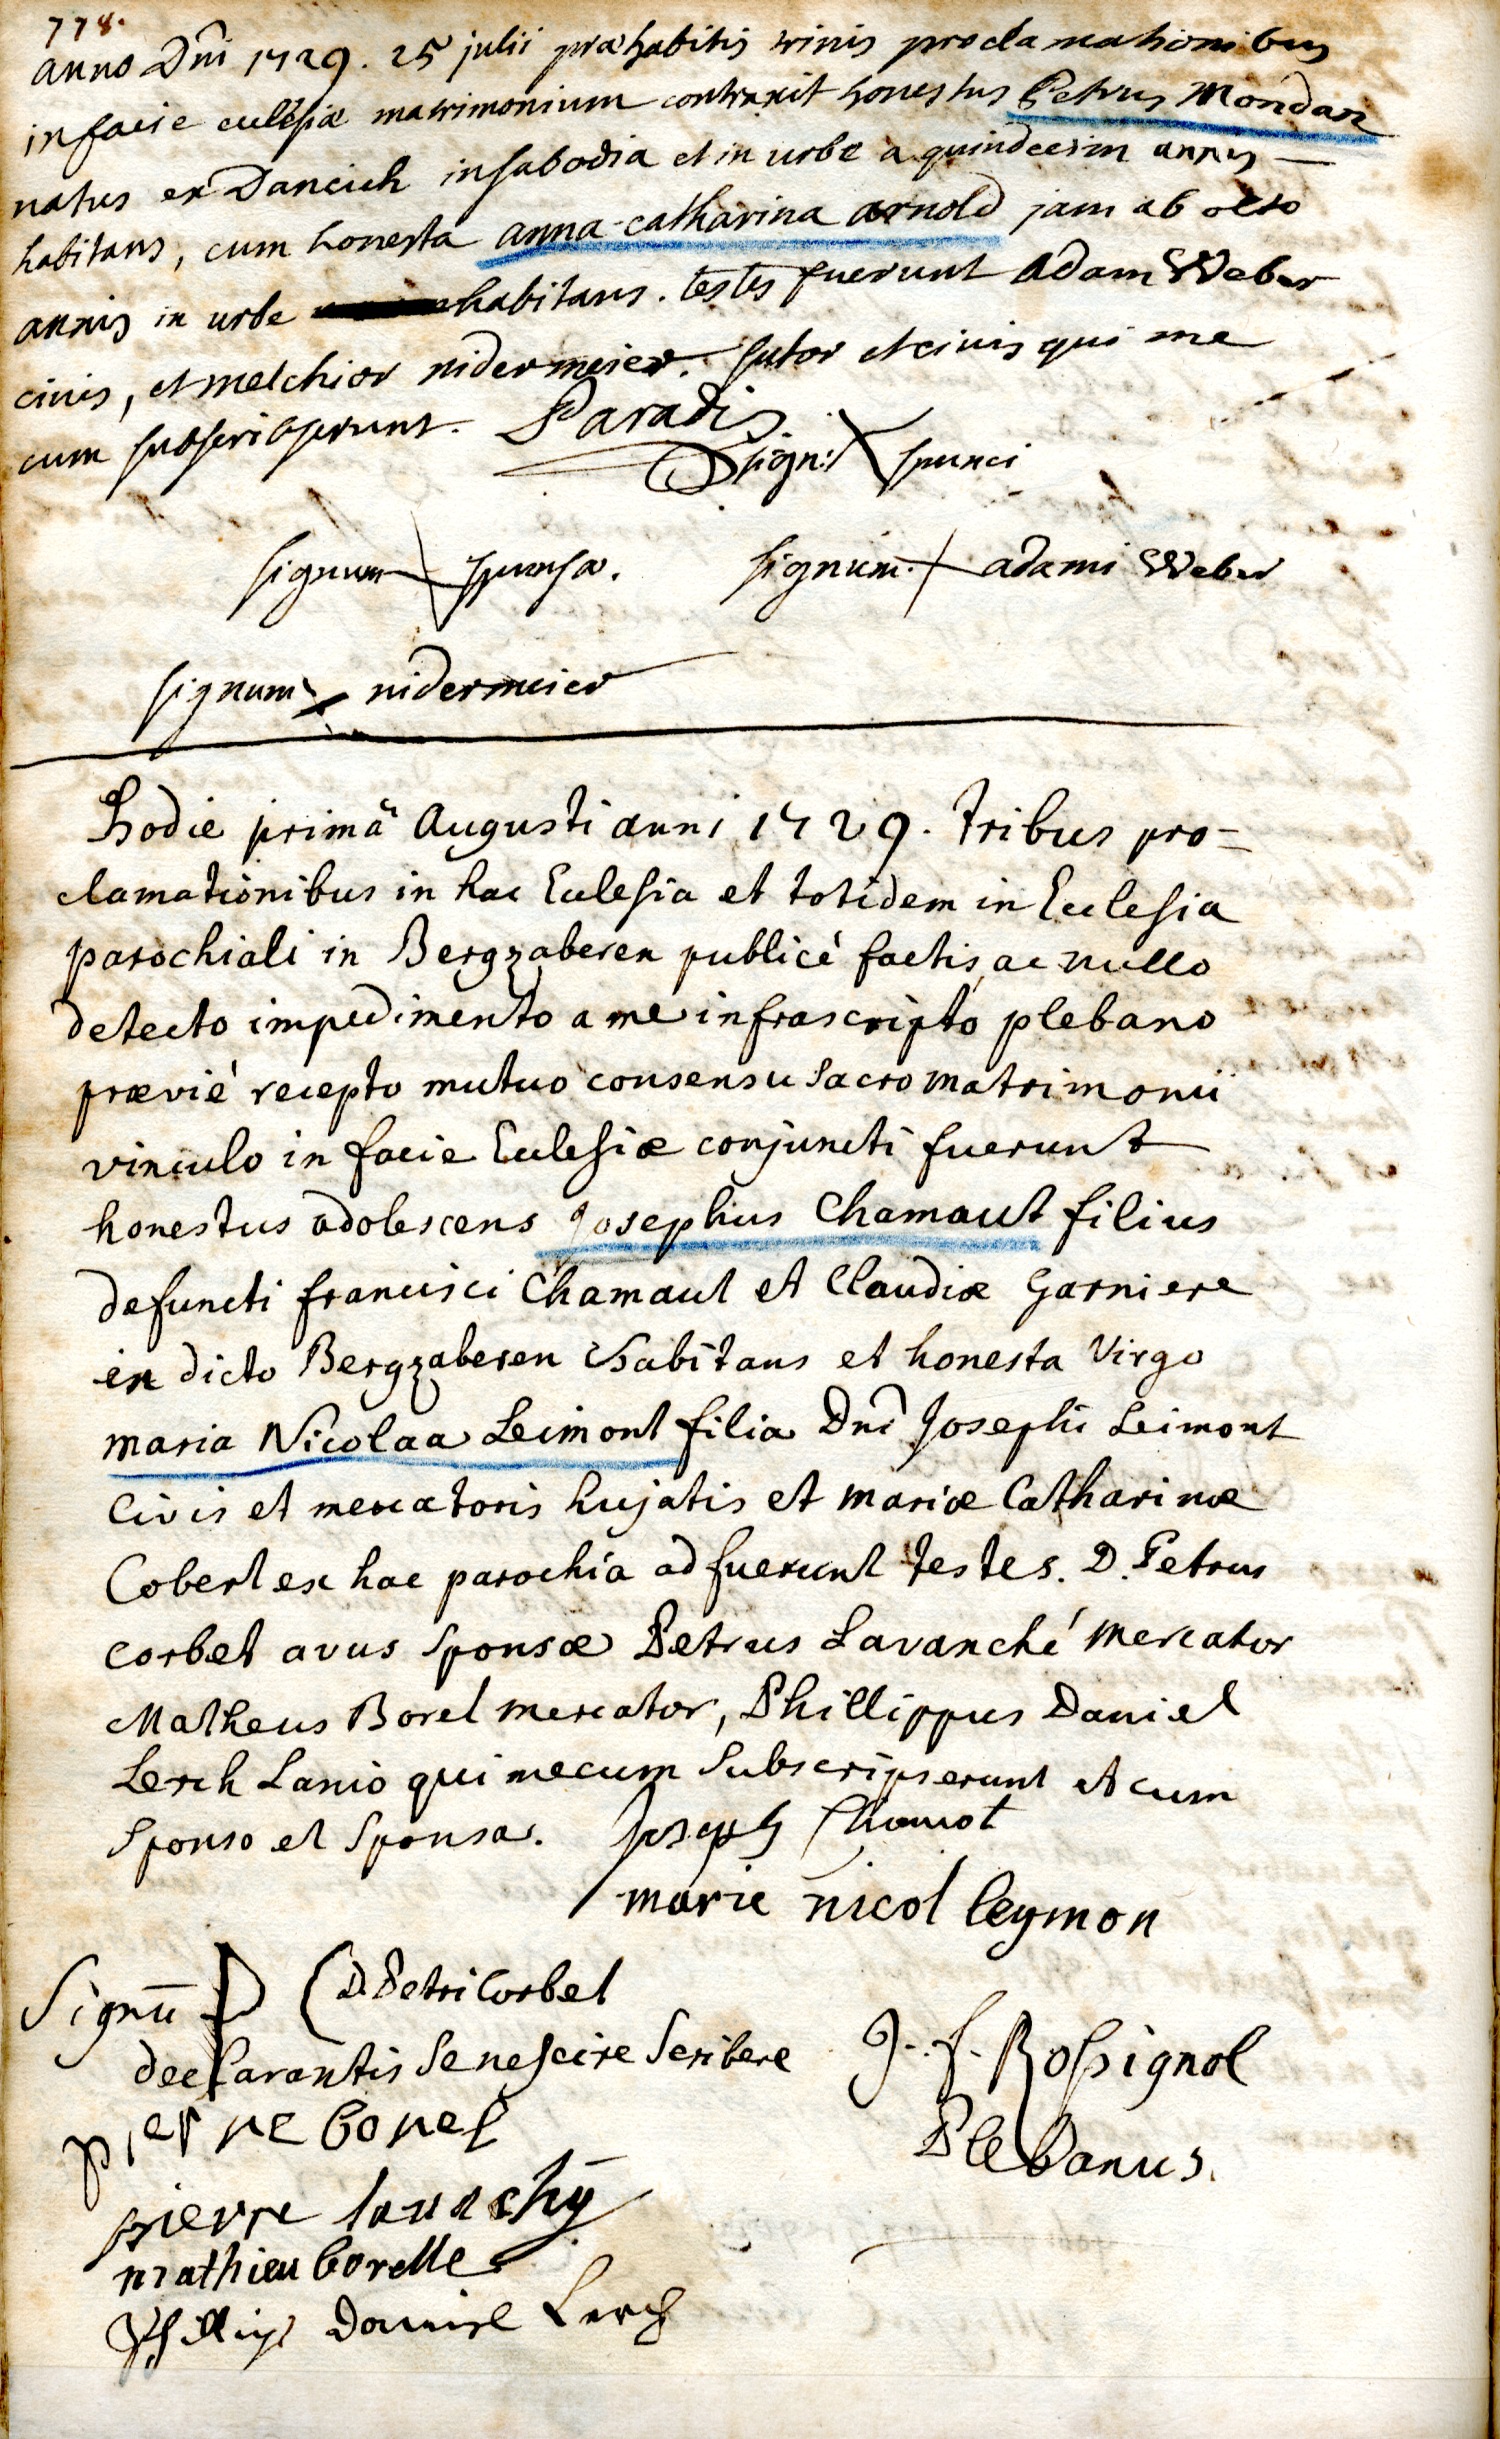 778.
anno Dñi 1729. 25 julii præhabitis trinis proclamationibus
in facie ecclesiæ matrimonium contraxit honestus Petrus Mondan
natus ex Dancich in sabodia et in urbe a quindecim annis —
habitans, cum honesta anna-catharina arnold jam ab octo
annis in urbe habitans. testes fuerunt Adam Weber
civis, et melchior nidermeier. sutor et civis qui me
cum subscripserunt. Paradis
sign: X spunci
signum X spunsæ. signum. X adami Weber
signum X nidermeier
Hodie primâ Augusti anni 1729. tribus pro=
clamationibus in hac Ecclesia et totidem in Ecclesia
parochiali in Bergzaberen publicè factis, ac nullo
detecto impedimento a me infrascripto plebano
prævié recepto mutuo consensu Sacro matrimonii
vinculo in facie Ecclesiæ conjuncti fuerunt
honestus adolescens Josephus Chamaut filius
defuncti francisci Chamaut et Claudiæ Garniere
in dicto Bergzaberen habitans et honesta Virgo
maria Nicolaa Leimont filia Dni Josephi Leimont
Civis et mercatoris hujatis et mariæ Catharinæ
Cobert ex hac parochia adfuerunt testes. D. Petrus
Corbet avus Sponsæ Petrus Lavanché mercator
Matheus Borel mercator, Phillippus Daniel
Lerch Lanio qui mecum Subscripserunt et cum
Sponso et Sponsa. Joseph Chamot
marie nicol leymon
Signũ (D. Petri Corbet
declarantis Se nescire Scribere J. f. Rossignol
Plebanus.
pierre
pierre lavachy
mathieu borelle
Phillip Daniel Lerch